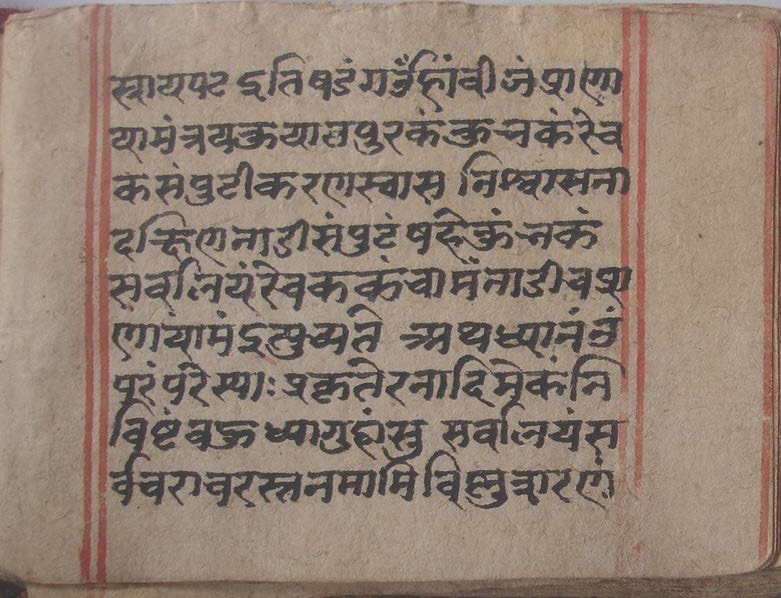 स्त्रायपट इति षडंग उँ हांबीजं प्राणा
यामं त्रयक्त यात्तपुरकं क्तंचकं रेच
कसंपुटीकरणस्वास निश्वासना
दक्षिणनाडीसंपुटं षहेक्तंचकं
सर्वालियं रेचककं वामंनाडीचप्रा
णायामं इत्युच्यते अथध्यानं उं
पुरं परेस्याः प्रकृतेरनादिमेकं नि
विष्टं बऊध्यागुहांसु सर्वालियं स
र्वचराचरस्तं नमामि विष्णुत्रारणं